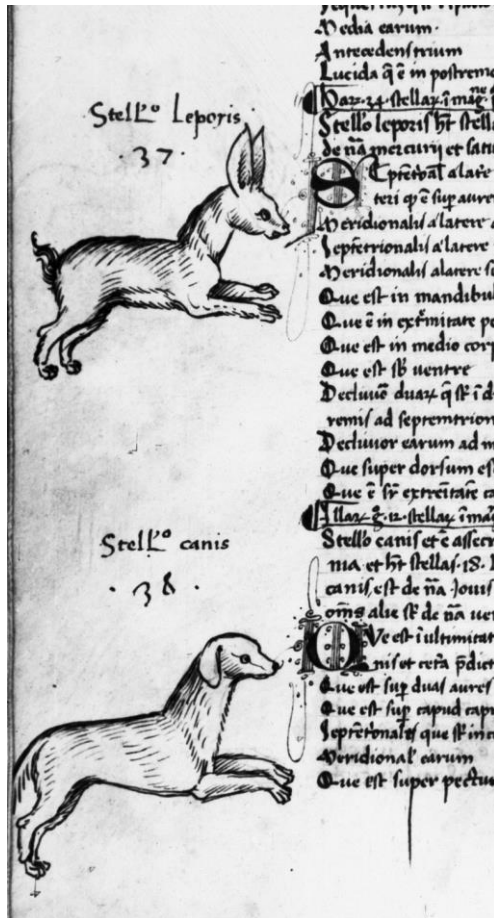 Media earum.
Antecedens trium
Lucida q̄ ē in postremo
Stell'o Leporis
.37.
Haꝝ. 34. stellaꝝ. ī mag̅.
Stello leporis h̅t stell
de n̅a mercurij et satu
alate
teri q̄ ē sup aurem
Meridionalis a latere
septētrionalis a latere
Meridionalis alatere
Que est in mandibul
Que ē in ext̄mitate pe
Que est in medio corp
Que est sb ventre
Decliuio duaꝝ q̄ st̄ ī d
remis ad septemtrion
Decliuior earum ad m
Que super dorsum es
Que ē sr̄ extrēitate ca
Illaꝝ g̊. 12. stellaꝝ ī ma
Stell'o canis
.38.
Stello canis et ē assecr
nia. et h̅t stellas. 18.
canis. est de n̅a Jouis
om̅s alie st̄ de n̅a uen
Ve est ī ultimitat
nis et cet̄a p̄dict
Que est sup duas aures
Que est sup capud cap
septētonales que st̄ in c
Meridional' earum
Que est super pectus